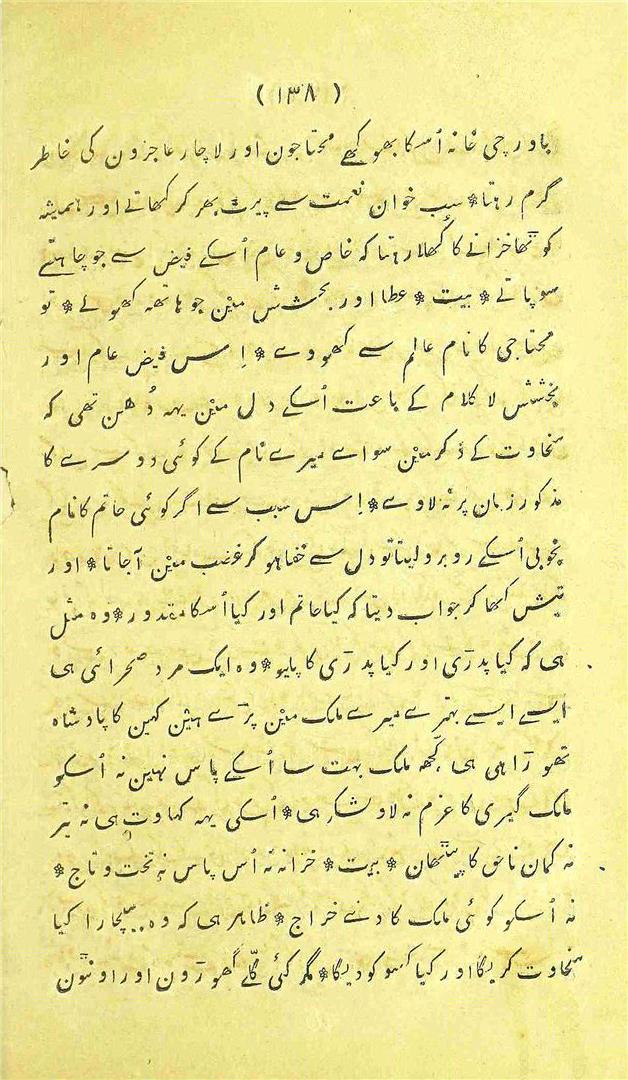 ( ۱۳۸ )
باورچی خانہ اُسکا بھوکھے محتاجون اور لاچار عاجزون کی خاطر
گرم رہتا * سب خوان نعمت سے پیٹ بھر کر کھاتے اور ہمیشہ
کوٹھا خزانے کا کُھلا رہتا کہ خاص و عام اُسکے فیض سے جو چاہتے
سو پاتے * بیت * عطا اور بخشش مین جو ہاتھہ کھولے * تو
محتاجی کا نام عالم سے کھووے * اِس فیض عام اور
بخشش لا کلام کے باعث اُسکے دل مین یہہ دُھن تھی کہ
سخاوت کے ذکر مین سواے میرے نام کے کوئی دوسرے کا
مذکور زبان پر نہ لاوے * اِس سبب سے اگر کوئی حاتم کا نام
بخوبی اُسکے روبرو لیتا تو دل سے خفا ہو کر غضب مین آ جاتا * اور
تیش کھا کر جواب دیتا کہ کیا حاتم اور کیا اُسکا مقدور * وہ مثل
ہی کہ کیا پدّی اور کیا پدّی کا پلیو * وہ ایک مرد صحرائی ہی
ایسے ایسے بہتیرے میرے ملک مین پڑے ہین کہین کا پادشاہ
تھوڑا ہی ہی کُچھہ ملک بہت سا اُسکے پاس نہین نہ اُسکو
ملک گیری کا عزم نہ لاو لشکر ہی * اُسکی یہہ کہاوت ہی نہ تیر
نہ کمان ناحق کا پیٹھان * بیت * خزانہ نہ اُس پاس نہ تخت و تاج *
نہ اُسکو کوئی ملک کا دے خراج * ظاہر ہی کہ وہ بیچارا کیا
سخاوت کریگا اور کیا کسو کو دیگا * مگر کئی گلّے گھوڑون اور اونٹون